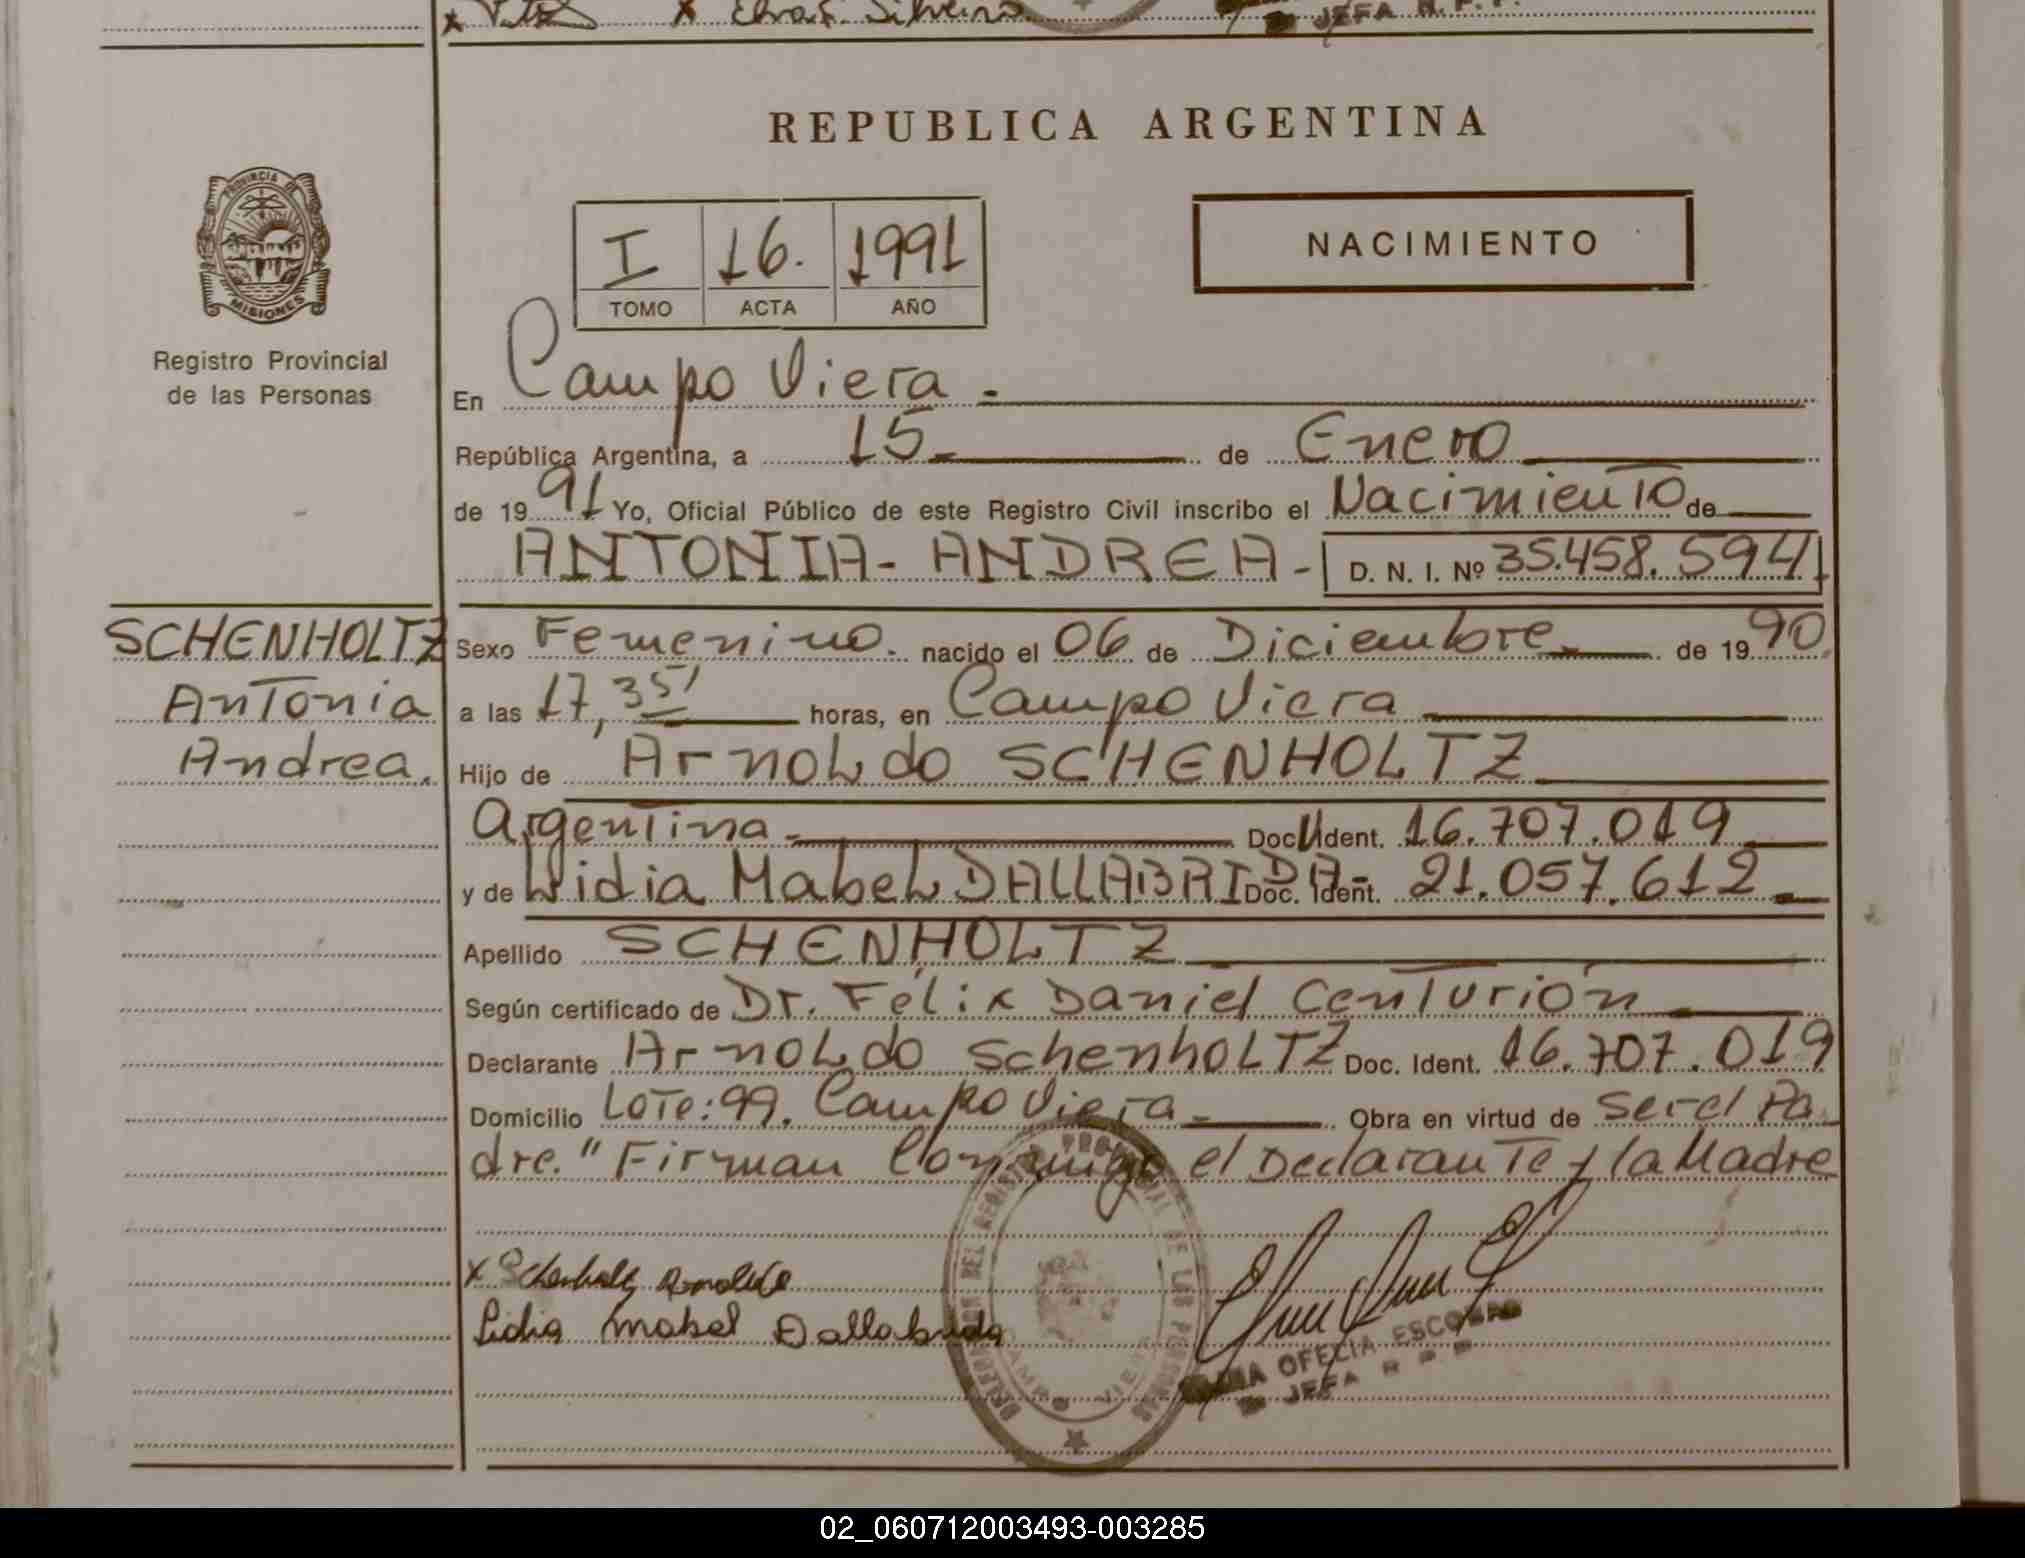 x Elva F. Silveira
JEFA R. P. P.
REPUBLICA ARGENTINA
PROVINCIA DE
MISIONES
Registro Provincial
de las Personas
I 16. 1991
TOMO ACTA AÑO
NACIMIENTO
En Campo Viera -
República Argentina, a 15 de Enero
de 1991 Yo, Oficial Público de este Registro Civil inscribo el Nacimiento de
ANTONIA - ANDREA - D. N. I. Nº 35.458.594
SCHENHOLTZ
Antonia
Andrea.
Sexo Femenino. nacido el 06 de Diciembre de 1990.
a las 17,35' horas, en Campo Viera
Hijo de Arnoldo SCHENHOLTZ
Argentina - Doc. Ident. 16.707.019
y de Lidia Mabel DALLABRIDA - Doc. Ident. 21.057.612 -
Apellido SCHENHOLTZ
Según certificado de Dr. Félix Daniel Centurión
Declarante Arnoldo SchenhoLTZ Doc. Ident. 16.707.019
Domicilio Lote: 99. Campo Viera - Obra en virtud de ser el Pa
dre." Firman Conmigo el Declarante y la Madre
x Schenholtz Arnoldo
Lidia Mabel Dallabrida
DELEGACION DEL REGISTRO PROVINCIAL DE LAS PERSONAS
CAMPO VIERA
OFELIA ESCOBAR
JEFA R P P
02_060712003493-003285